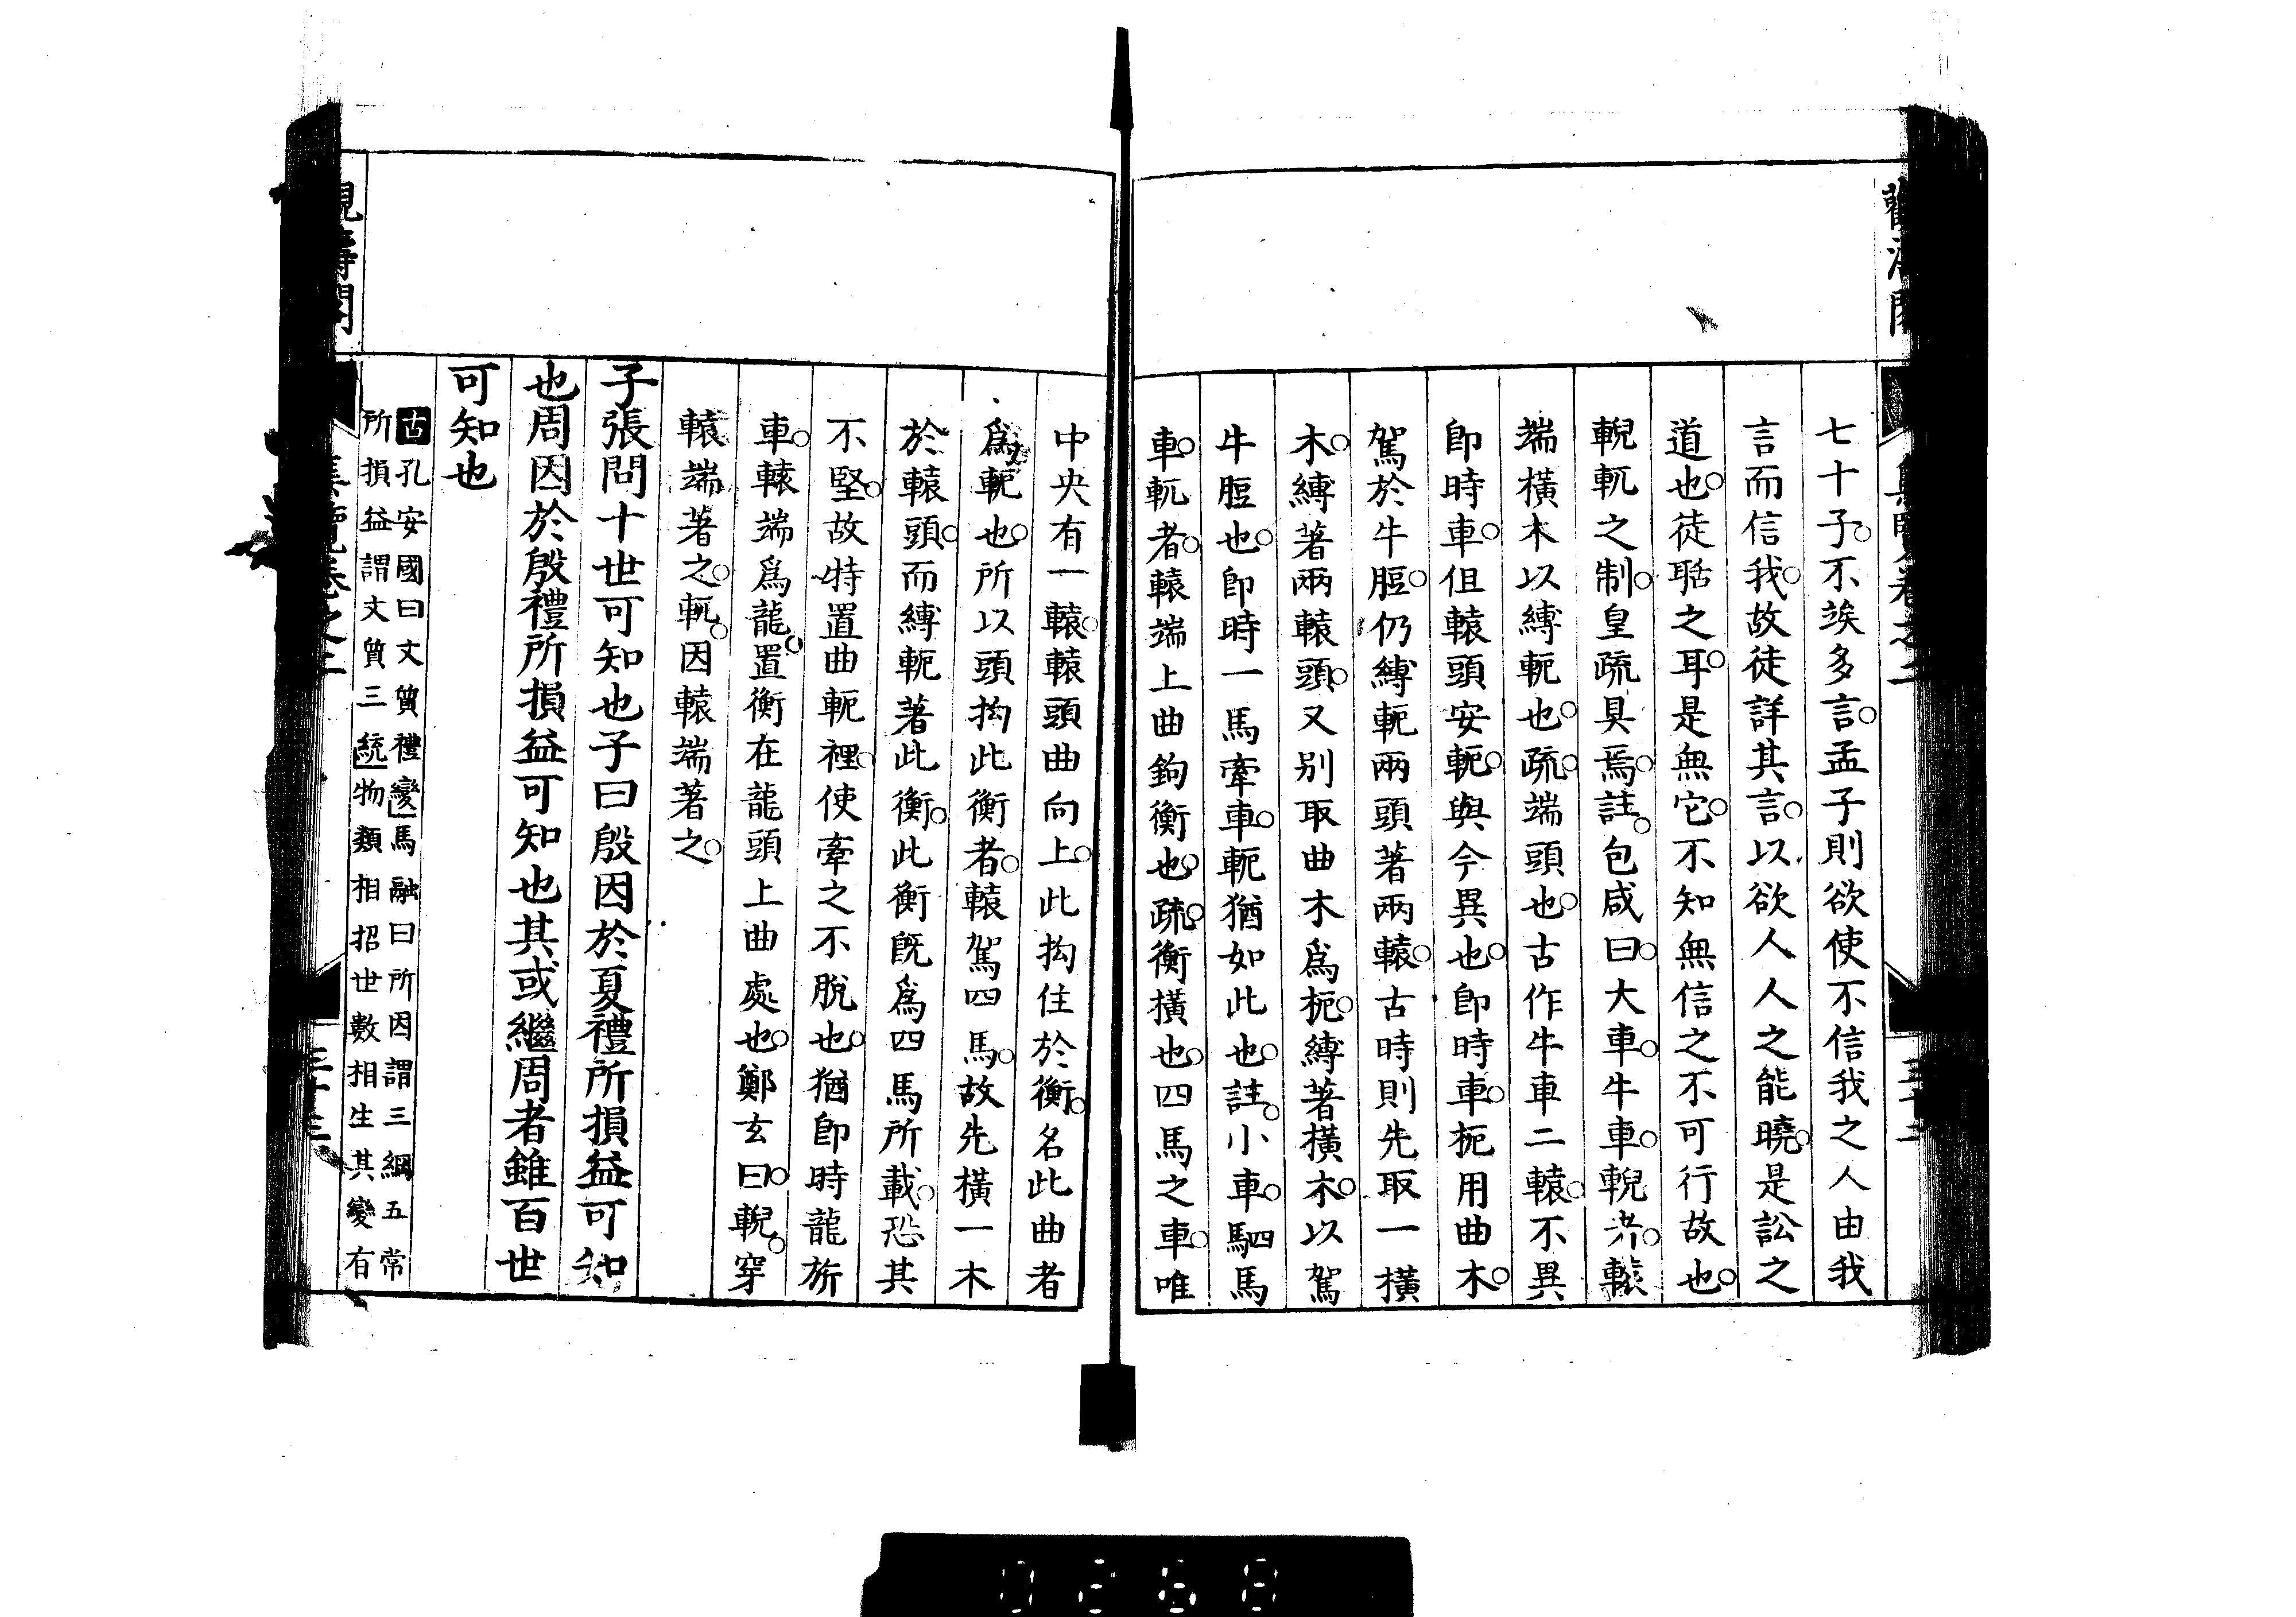 七十子不竢多言孟子則欲使不信我之人由我
言而信我故徒詳其言以欲人人之能曉是訟之
道也徒聒之耳是無它不知無信之不可行故也
輗軏之制皇疏具焉註包咸曰大車牛車輗𫝶轅
端橫木以縛軛也疏端頭也古作牛車二轅不異
即時車但轅頭安軛與今異也即時車枙用曲木
駕於牛脰仍縛軛兩頭著兩轅古時則先取一橫
木縛著兩轅頭又别取曲木爲枙縛著橫木以駕
牛脰也即時一馬牽車軛猶如此也註小車駟馬
車軏者轅端上曲鉤衡也疏衡橫也四馬之車唯
中央有一轅轅頭曲向上此拘住於衡名此曲者
爲軏也所以頭拘此衡者轅駕四馬故先橫一木
於轅頭而縛軛著此衡此衡既爲四馬所載恐其
不堅故特置曲軛裡使牽之不脫也猶即時龍旂
車轅端爲龍置衡在龍頭上曲處也鄭玄曰輗穿
轅端著之軏因轅端著之
子張問十世可知也子曰殷因於夏禮所損益可知
也周因於殷禮所損益可知也其或繼周者雖百世
可知也
古孔安國曰文質禮變馬融曰所因謂三綱五常
所損益謂文質三統物類相招世數相生其變有